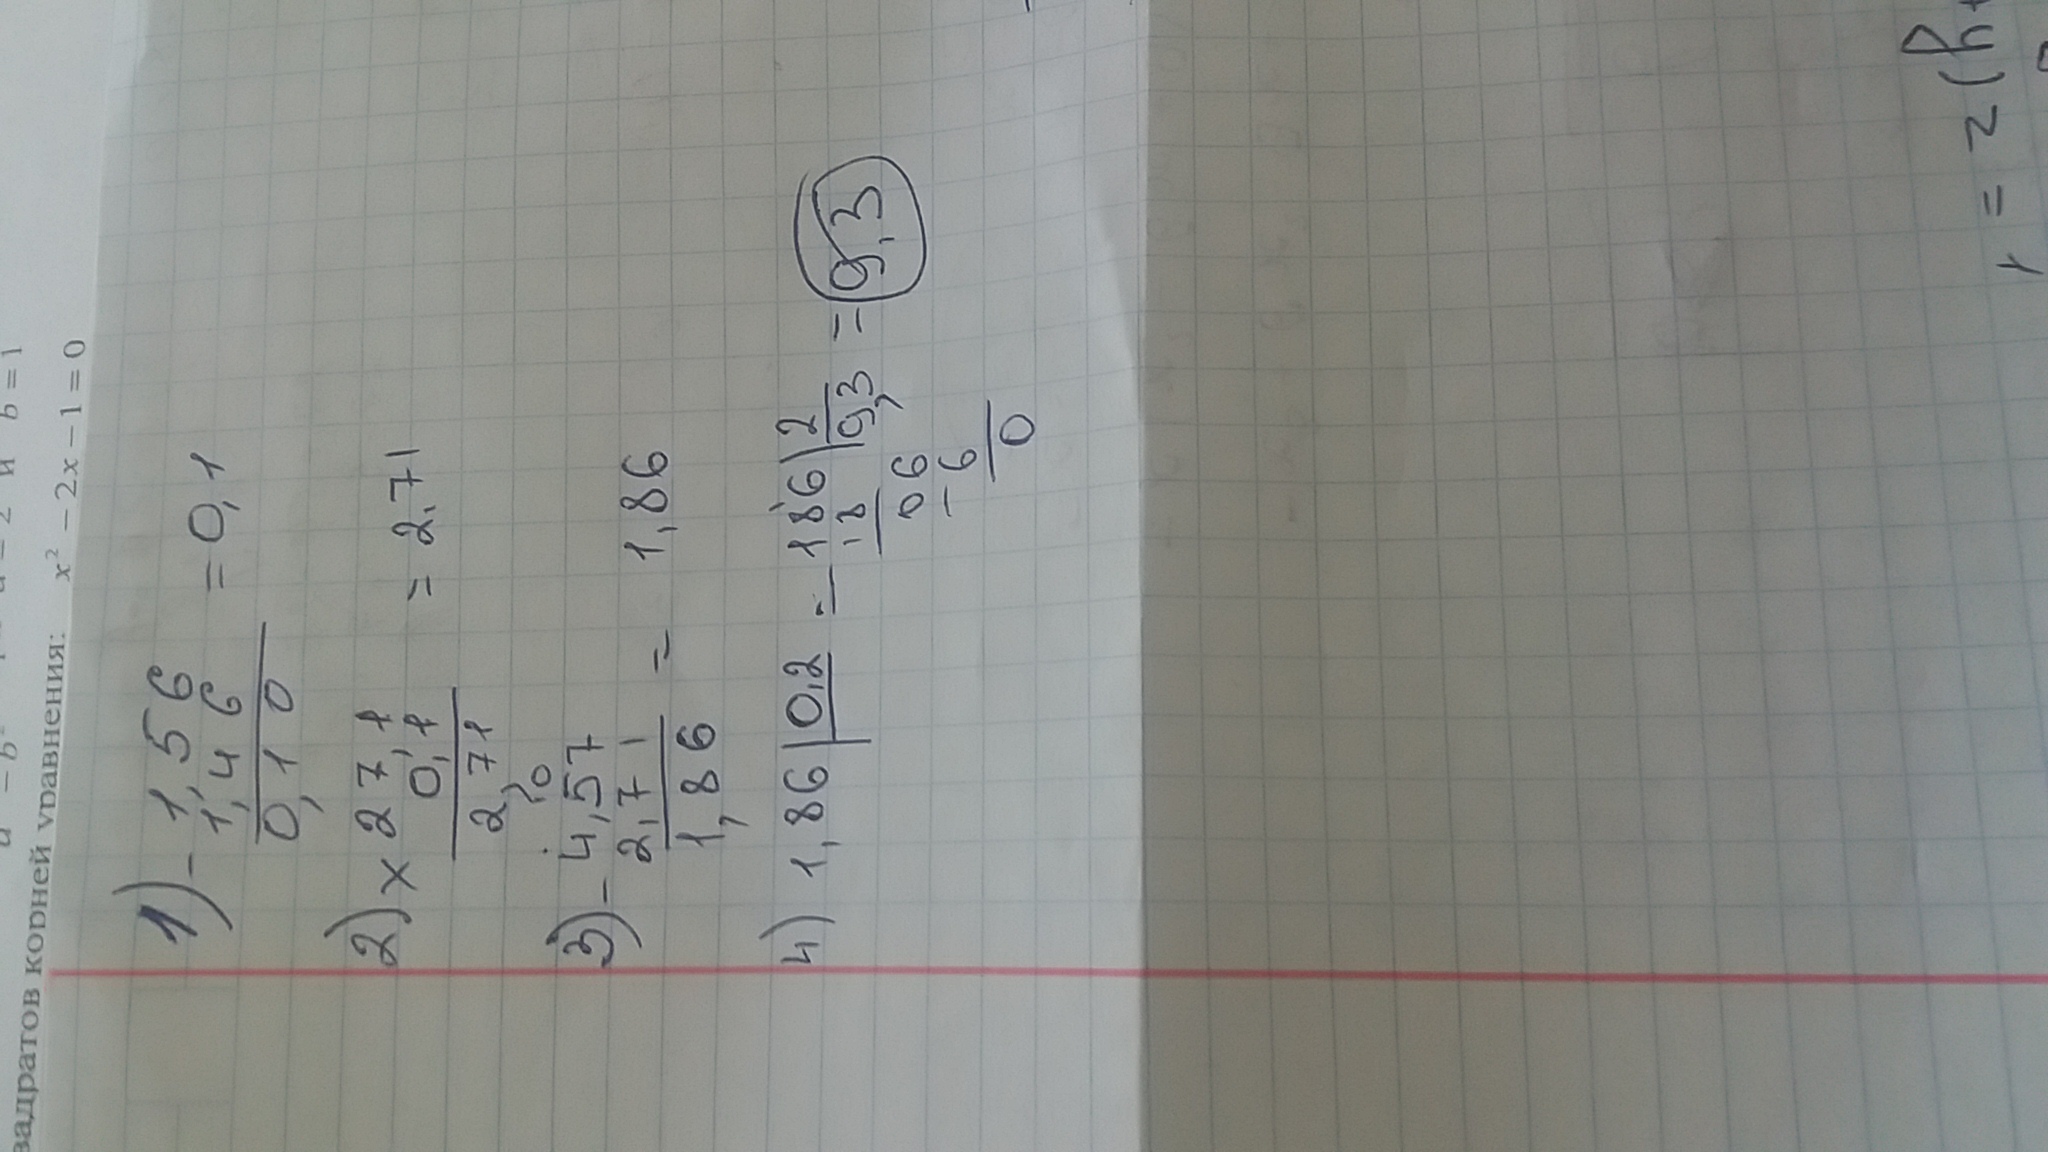 b = 1
вадратов корней уравнения: x² − 2x − 1 = 0
1) - 1,56
1,46 = 0,1
0,10
2) × 27,1
0,1 = 2,71
2,71
3) - 4,57
2,71 = 1,86
1,86
4) 1,86 | 0,2 = 18,6 | 2 = 9,3
18 9,3
06
- 6
0